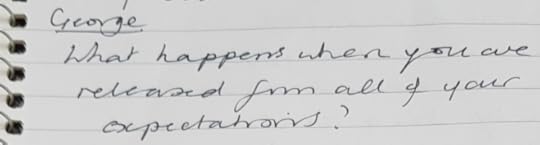 George
What happens when you are
released from all of your
expectations?